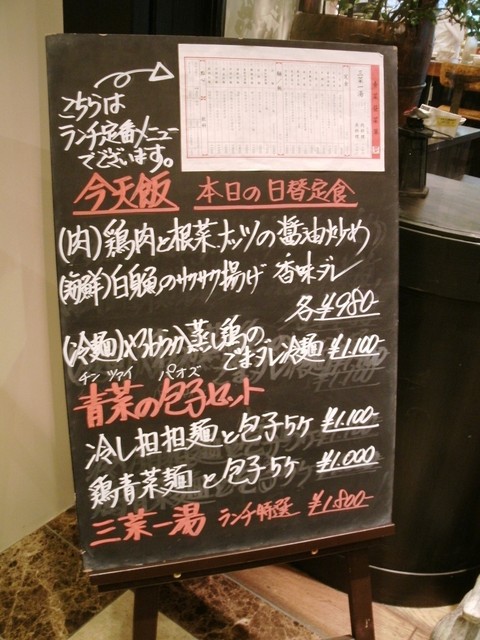 こちらは
ランチ定番メニュー
でございます。
今天飯 本日の日替定食
(肉)鶏肉と根菜、ナッツの醤油炒め
(海鮮)白身魚のサクサク揚げ 香味ダレ
各¥980-
(冷麺)やわらか蒸し鶏の
ごまダレ冷麺 ¥1.100-
チン ツァイ パオズ
青菜の包子セット
冷し担担麺と包子5ケ ¥1.100-
鶏青菜麺と包子5ケ ¥1.000
三菜一湯 ランチ特選 ¥1.800-